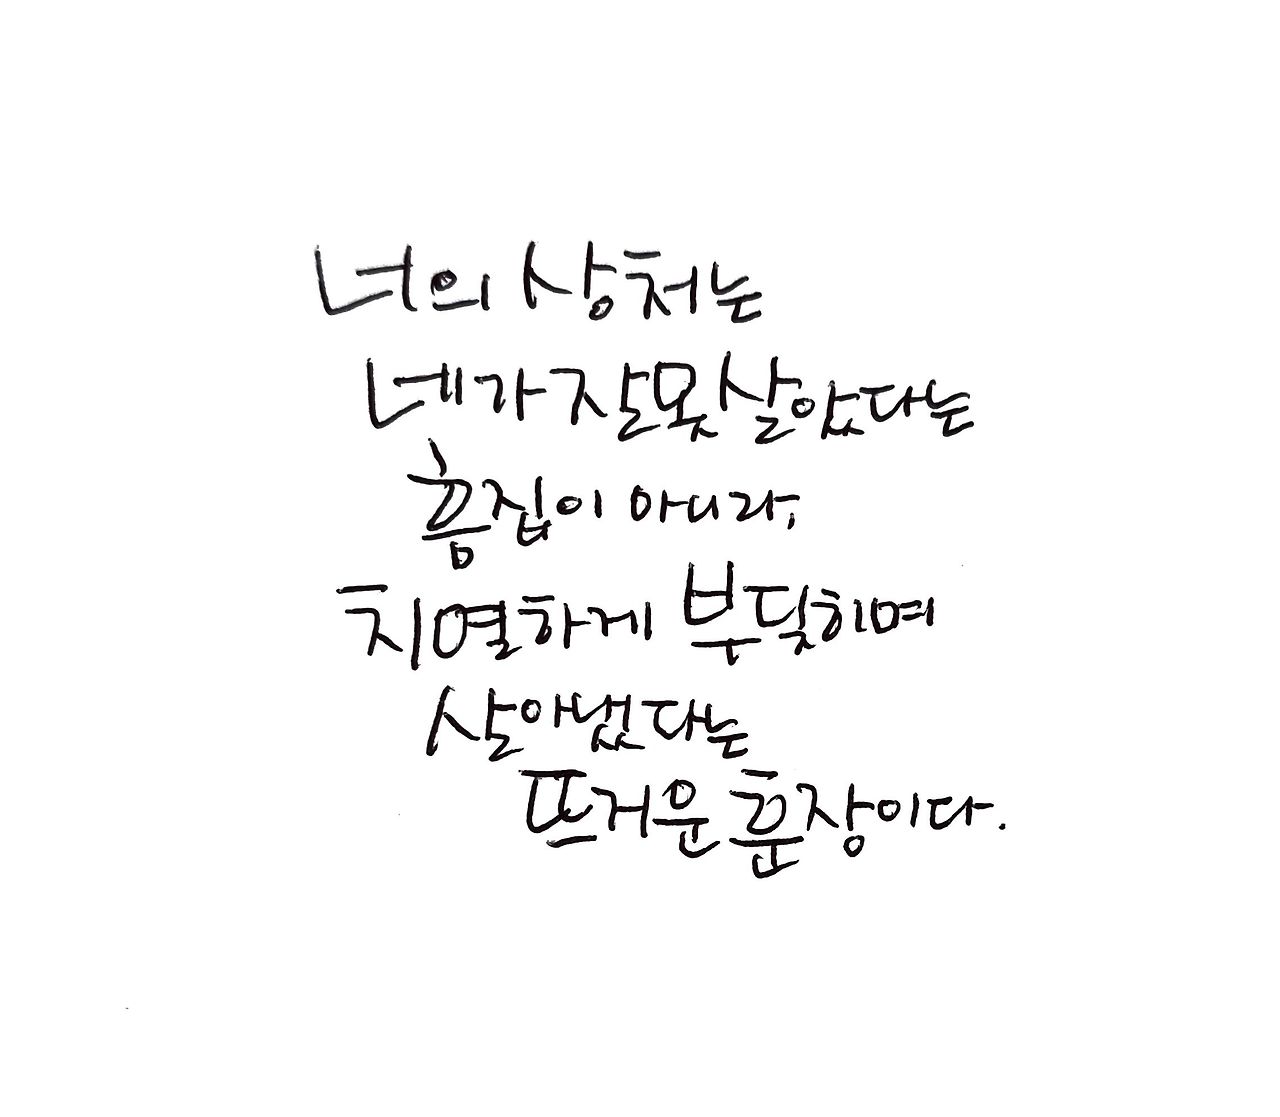 너의 상처는
네가 잘못 살았다는
흠집이 아니라,
치열하게 부딪히며
살아냈다는
뜨거운 훈장이다.